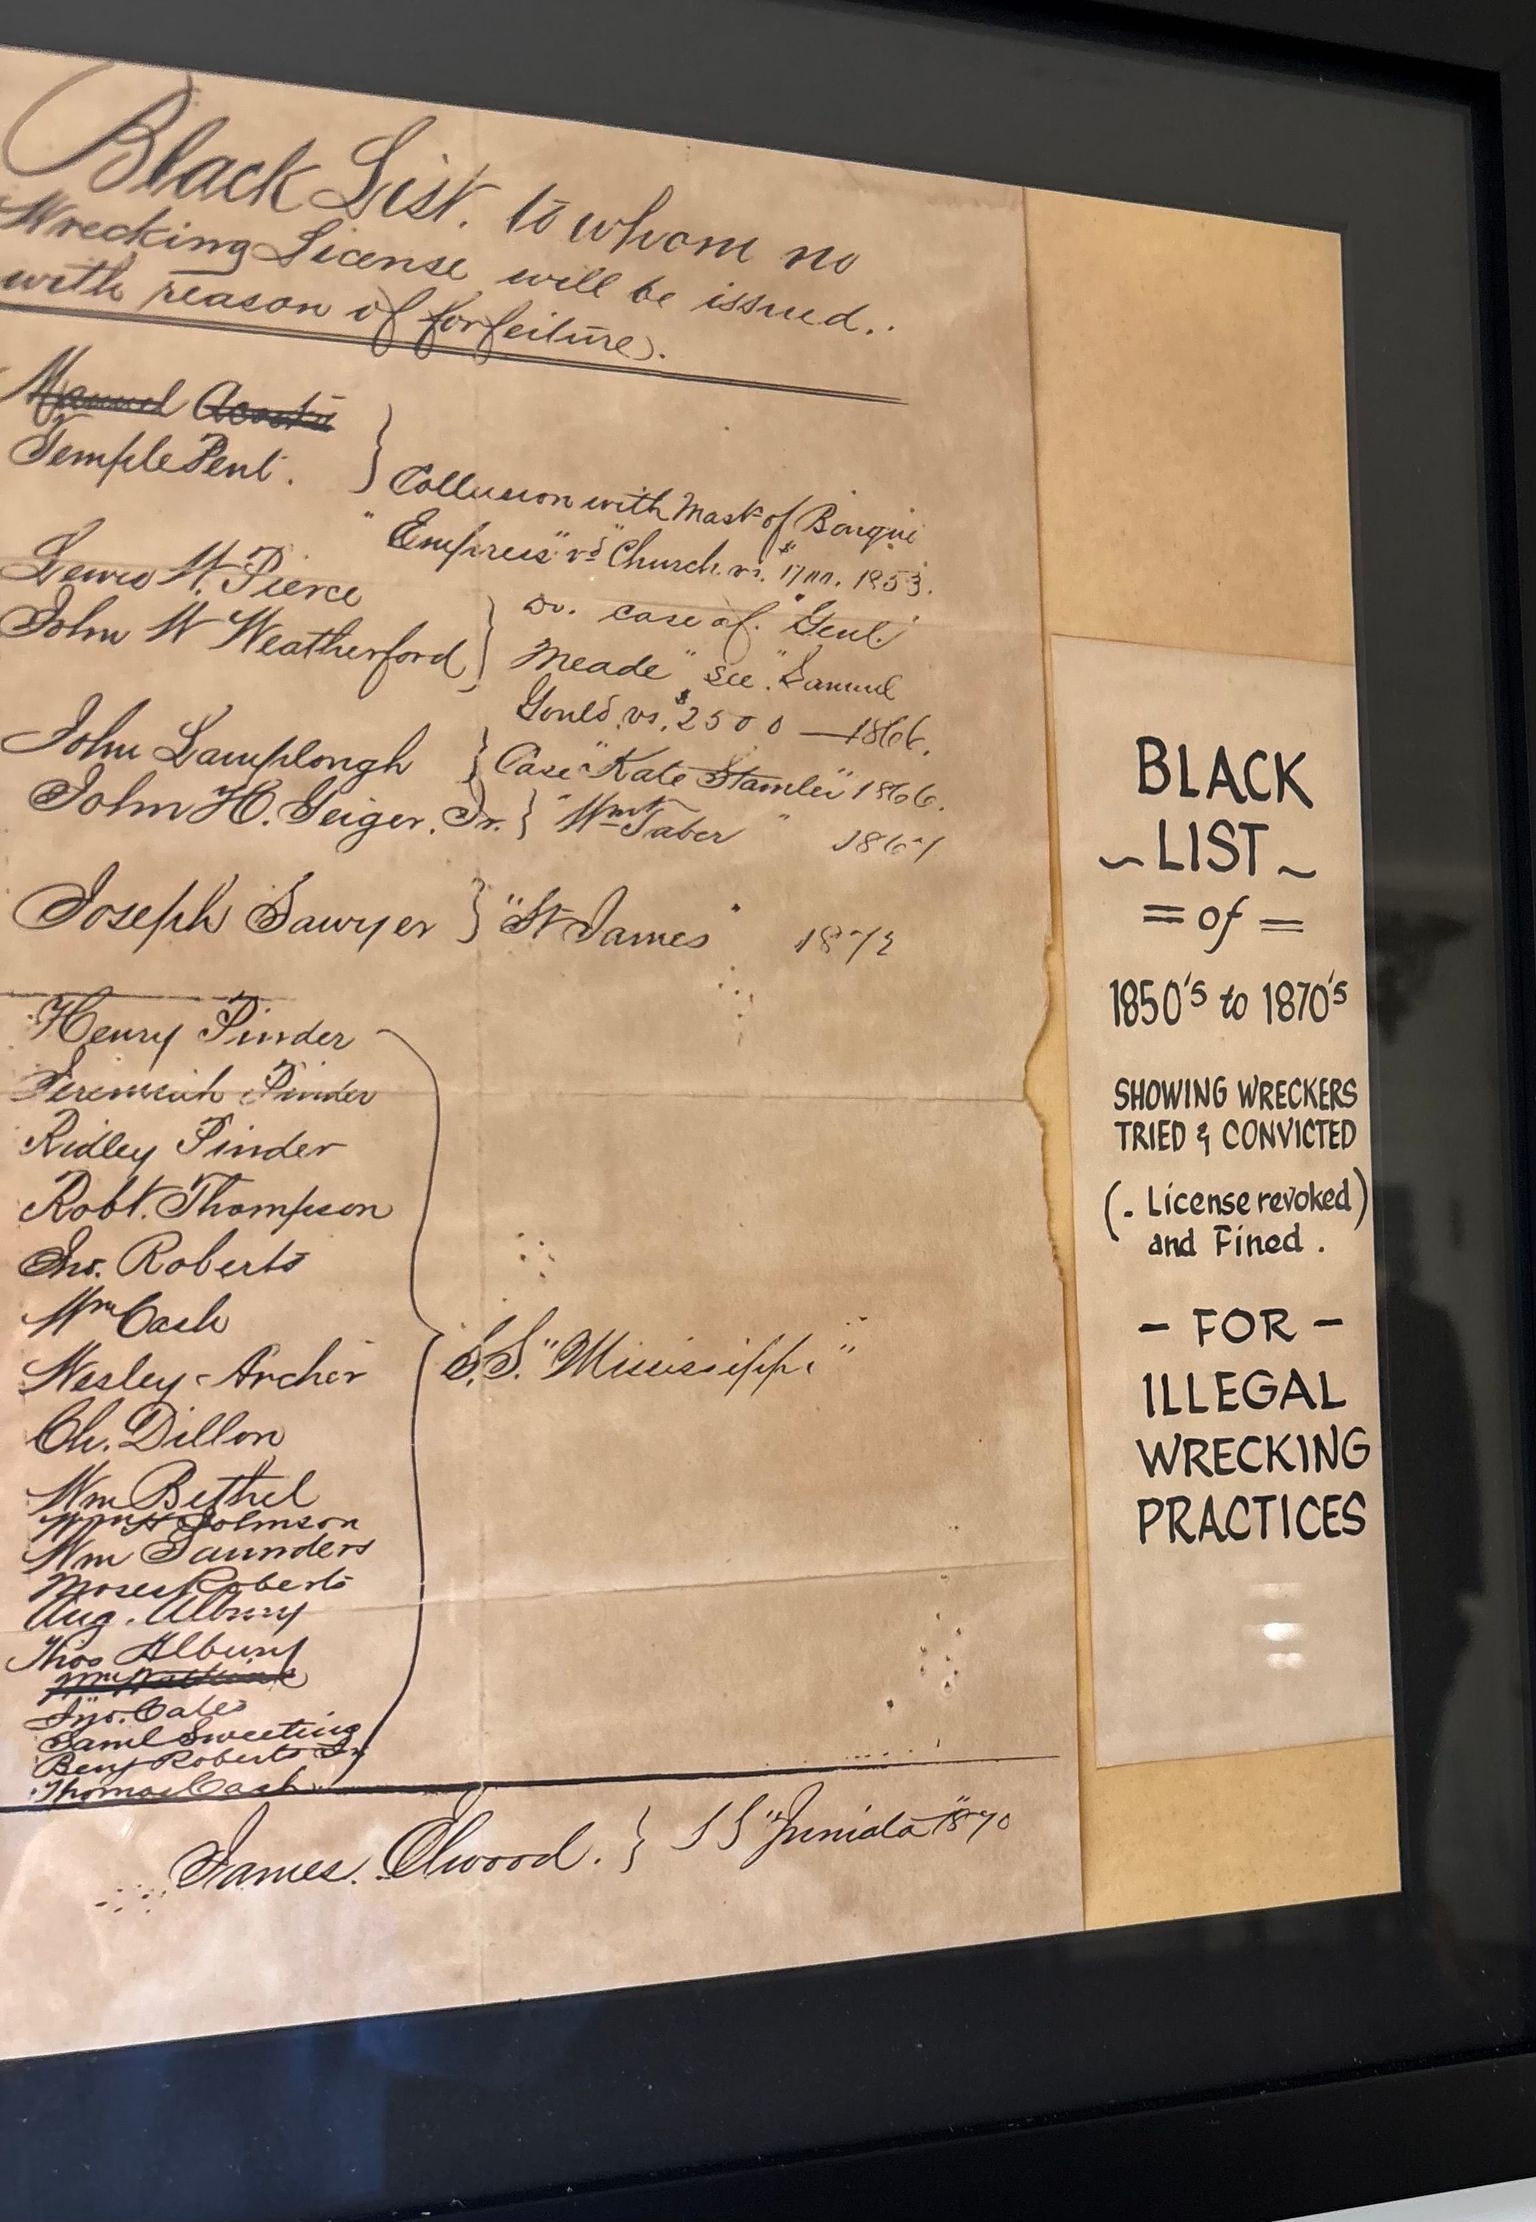 Black List. to whom no
Wrecking License will be issued..
with reason of forfeiture.
Manuel Acosta
Temple Pent.
Collusion with Mast of Barque
"Empress" vs Church vs. 1853.
Lewis W. Pierce
John W Weatherford
Do. case of "Genl.
Meade" see "Samuel
Gould vs. $2500 — 1866.
John Lamplough
Case "Kate Stamler" 1866.
John H. Geiger, Jr. } "Wm Taber" 1867
Joseph Sawyer } "St James" 1872
Henry Pinder
Jeremiah Pinder
Ridley Pinder
Robt. Thompson
Jno. Roberts
Wm Cash
Wesley Archer
S.S. "Mississippi"
Ch. Dillon
Wm Bethel
Wm H Johnson
Wm Saunders
Moses Roberts
Aug. Albury
Thos Albury
Jno. Cates
Saml Sweeting
Benj Roberts Jr
Thomas Cash
James. Elwood. } SS "Juniata" 1870
BLACK
~ LIST ~
= of =
1850's to 1870's
SHOWING WRECKERS
TRIED & CONVICTED
(. License revoked)
and Fined .
- FOR -
ILLEGAL
WRECKING
PRACTICES